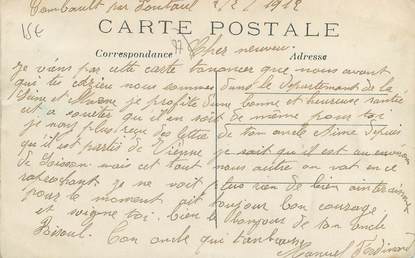 Combault par Pontaul 2/2/1912
15€
CARTE POSTALE
77
Cher neveux
Correspondance
Adresse
Je viens par cette carte tanoncer que nous avont
qui te nous sommes dans le departement de la
Seine et Marne je profite d'une bonne et heureuse santée
et a soueter qu'il en soit de même pour toi
je nous plus reçu des lettre de ton oncle depuis
qu'il est partis de je sait qu'il est au environ
de Soisson mais cet tout nous autre on vat en ce
raprochant je ne voit plus rien de bien
pour le moment ait toujour bon courage
et soigne toi. bien le bonjour de ton oncle
Ton oncle qui t'embrasse
Manuel Ferdinand